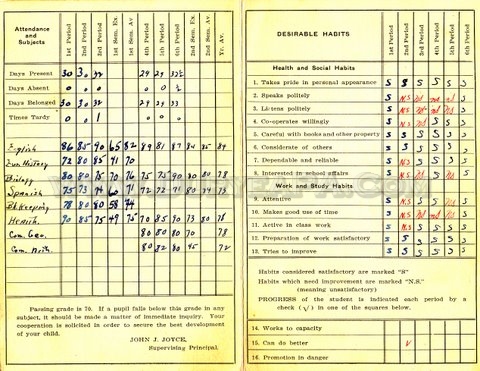 Attendance and Subjects 1st Period 2nd Period 3rd Period 1st Sem. Ex. 1st Sem. Av. 4th Period 5th Period 6th Period 2nd Sem. Ex. 2nd Sem. Av. Yr. Av.
Days Present 30 30 32 29 29 32½
Days Absent 0 0 0 0 0 ½
Days Belonged 30 30 32 29 29 33
Times Tardy 0 0 1 0 0 0
English 86 85 90 65 82 89 81 87 84 85 84
Eur. History 72 80 85 41 70
Biology 80 80 85 70 76 75 75 90 30 80 78
Spanish 75 73 74 60 71 72 72 71 80 74 73
Bkkeeping 78 80 80 58 74
Health 70 85 75 49 75 70 85 70 73 80 78
Com. Geo. 80 80 80 70 78
Com. Arith. 80 82 80 45 72
Passing grade is 70. If a pupil falls below this grade in any
subject, it should be made a matter of immediate inquiry. Your
cooperation is solicited in order to secure the best development
of your child.
JOHN J. JOYCE,
Supervising Principal.
DESIRABLE HABITS 1st Period 2nd Period 3rd Period 4th Period 5th Period 6th Period
Health and Social Habits
1. Takes pride in personal appearance S S S S S S
2. Speaks politely S N.S
3. Listens politely S N.S
4. Co-operates willingly S N.S
5. Careful with books and other property S S S S S
6. Considerate of others S S S S S
7. Dependable and reliable S N.S S S S S
8. Interested in school affairs S N.S
Work and Study Habits
9. Attentive S N.S
10. Makes good use of time S N.S
11. Active in class work S N.S S S S
12. Preparation of work satisfactory S S S S S S
13. Tries to improve S S S S S S
Habits considered satisfactory are marked "S"
Habits which need improvement are marked "N.S."
(meaning unsatisfactory)
PROGRESS of the student is indicated each period by a
check (√) in one of the squares below.
14. Works to capacity
15. Can do better √
16. Promotion in danger